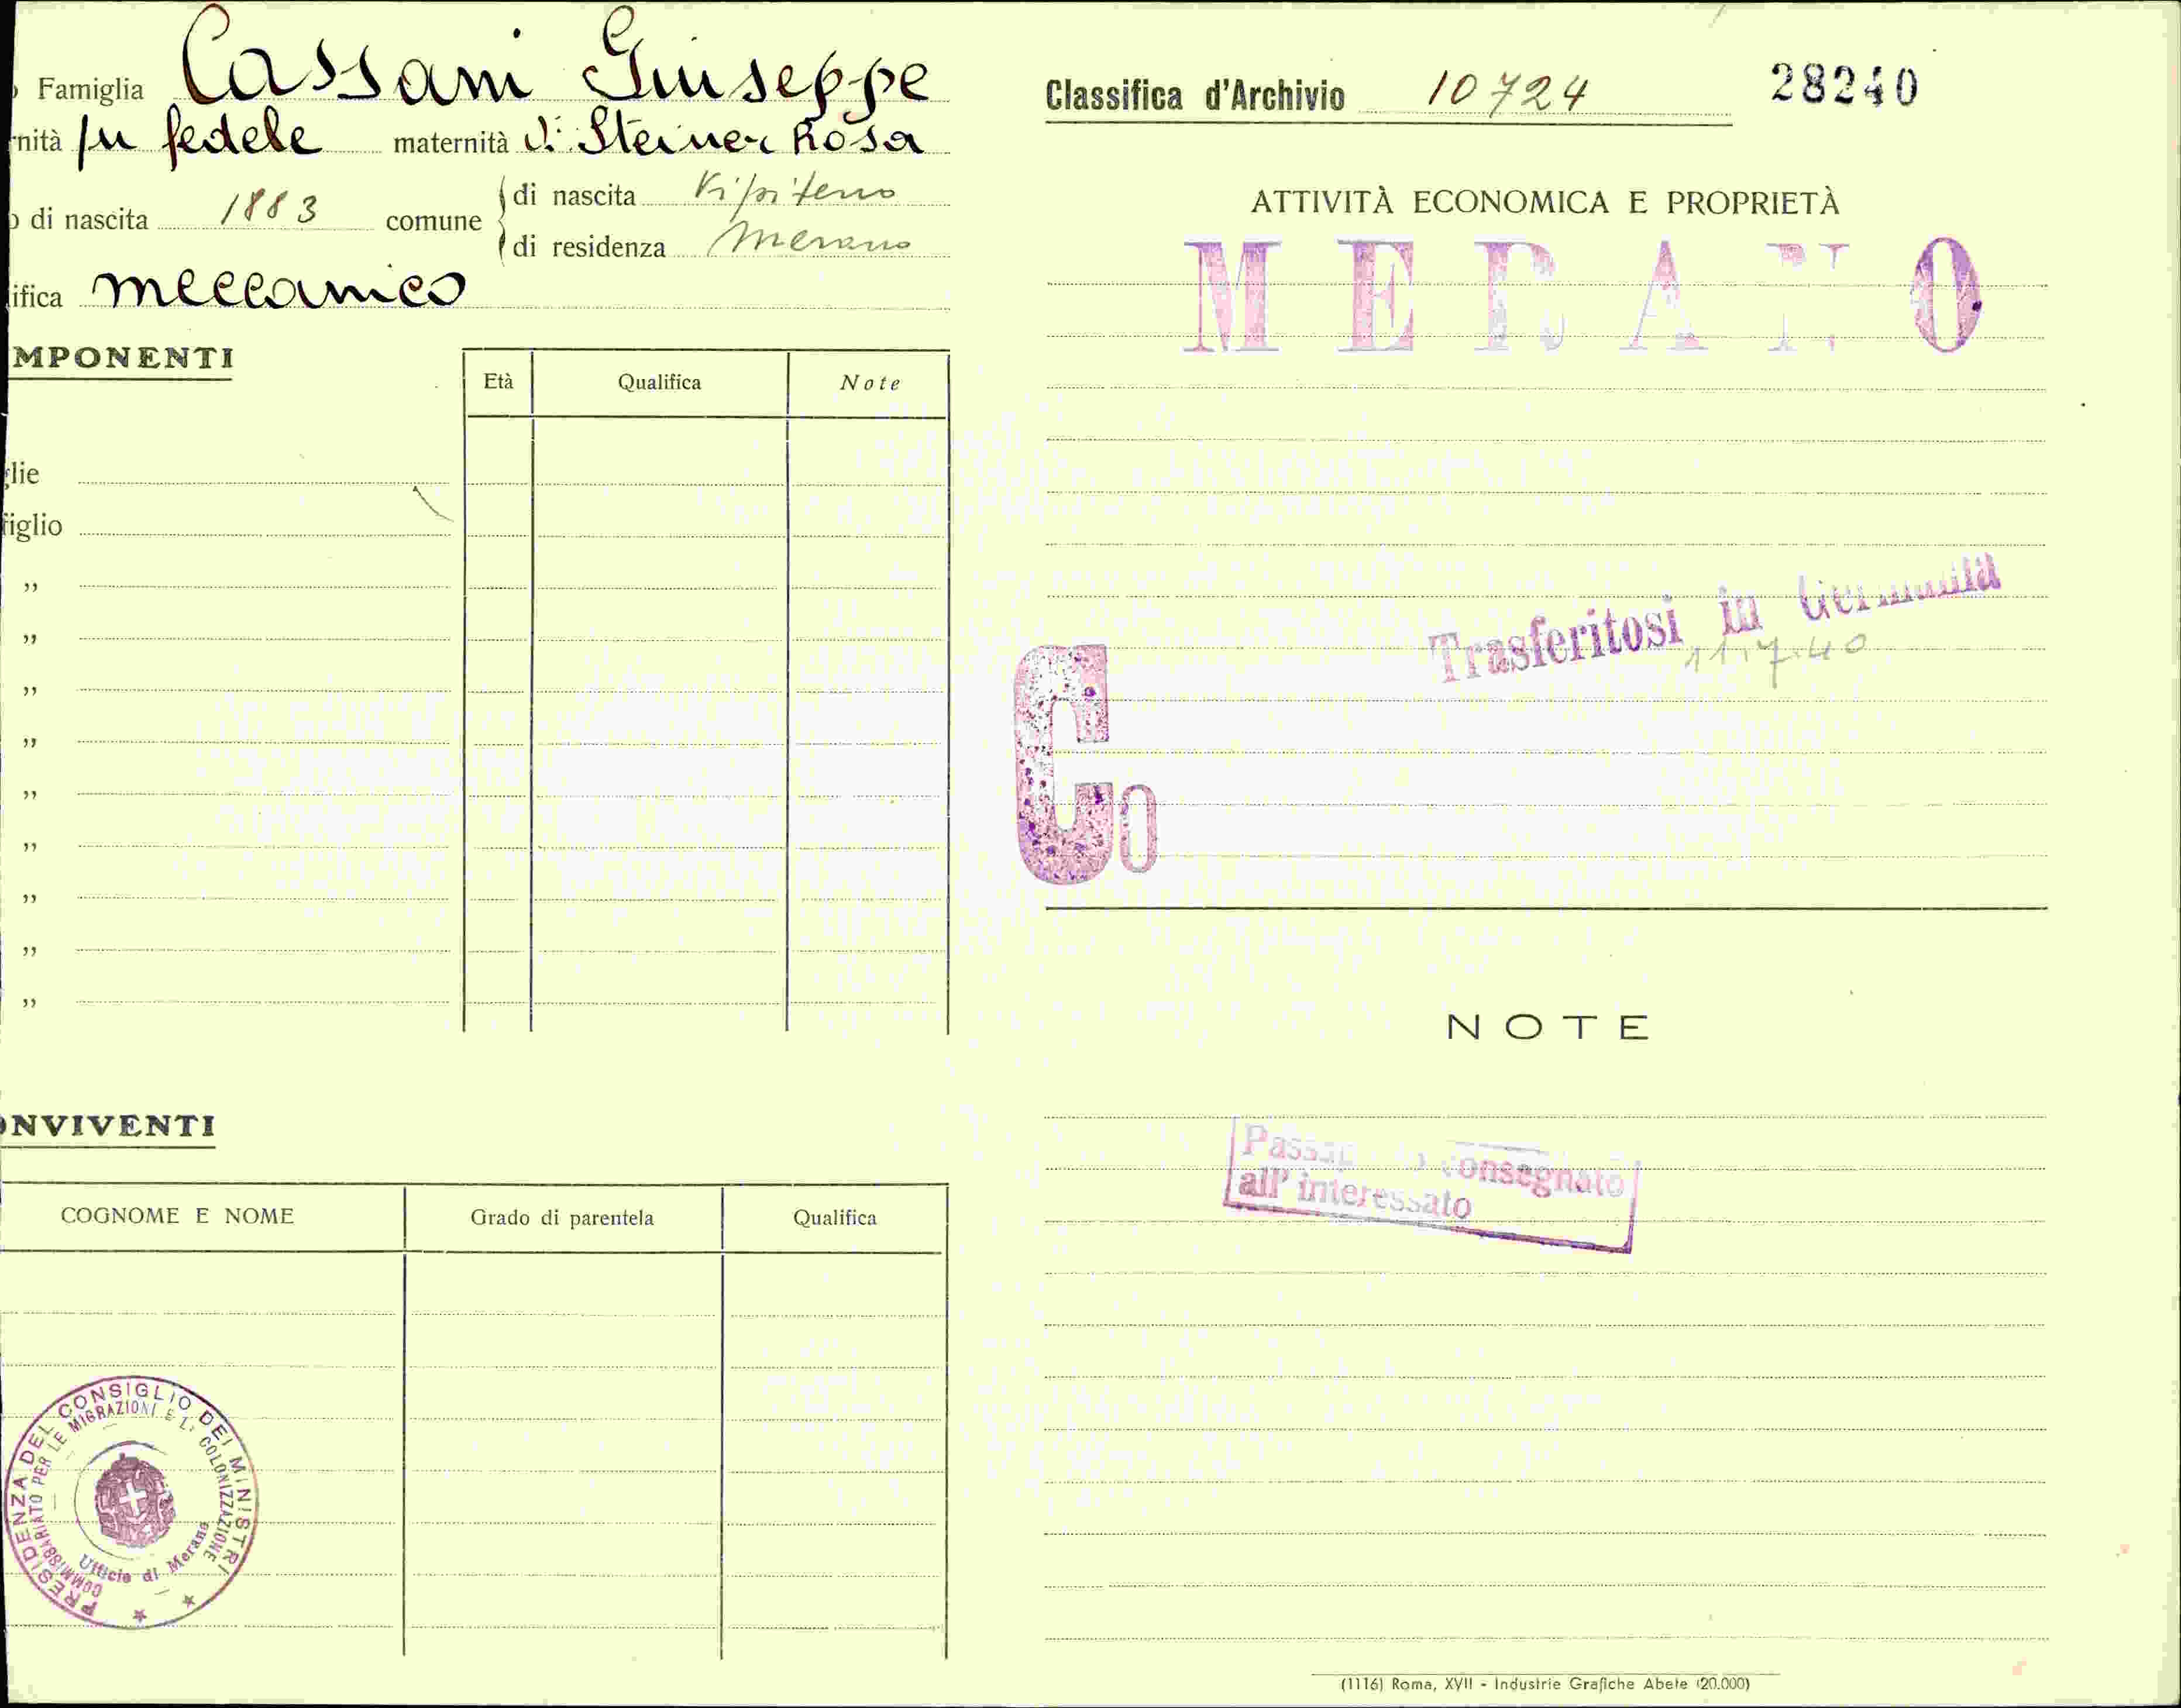 Famiglia Cassani Giuseppe
nità fu fedele maternità di Steiner Rosa
di nascita 1883 comune di nascita Vipiteno
di residenza Merano
ifica meccanico
MPONENTI
Età Qualifica Note
glie
figlio
"
"
"
"
"
"
"
"
"
ONVIVENTI
COGNOME E NOME Grado di parentela Qualifica
PRESIDENZA DEL CONSIGLIO DEI MINISTRI
COMMISSARIATO PER LE MIGRAZIONI E LA COLONIZZAZIONE
Ufficio di Merano
Classifica d'Archivio 10724 28240
ATTIVITÀ ECONOMICA E PROPRIETÀ
MERANO
Trasferitosi in Germania
11.7.40
Co
NOTE
Passaporto consegnato
all'interessato
(1116) Roma, XVII - Industrie Grafiche Abete (20.000)